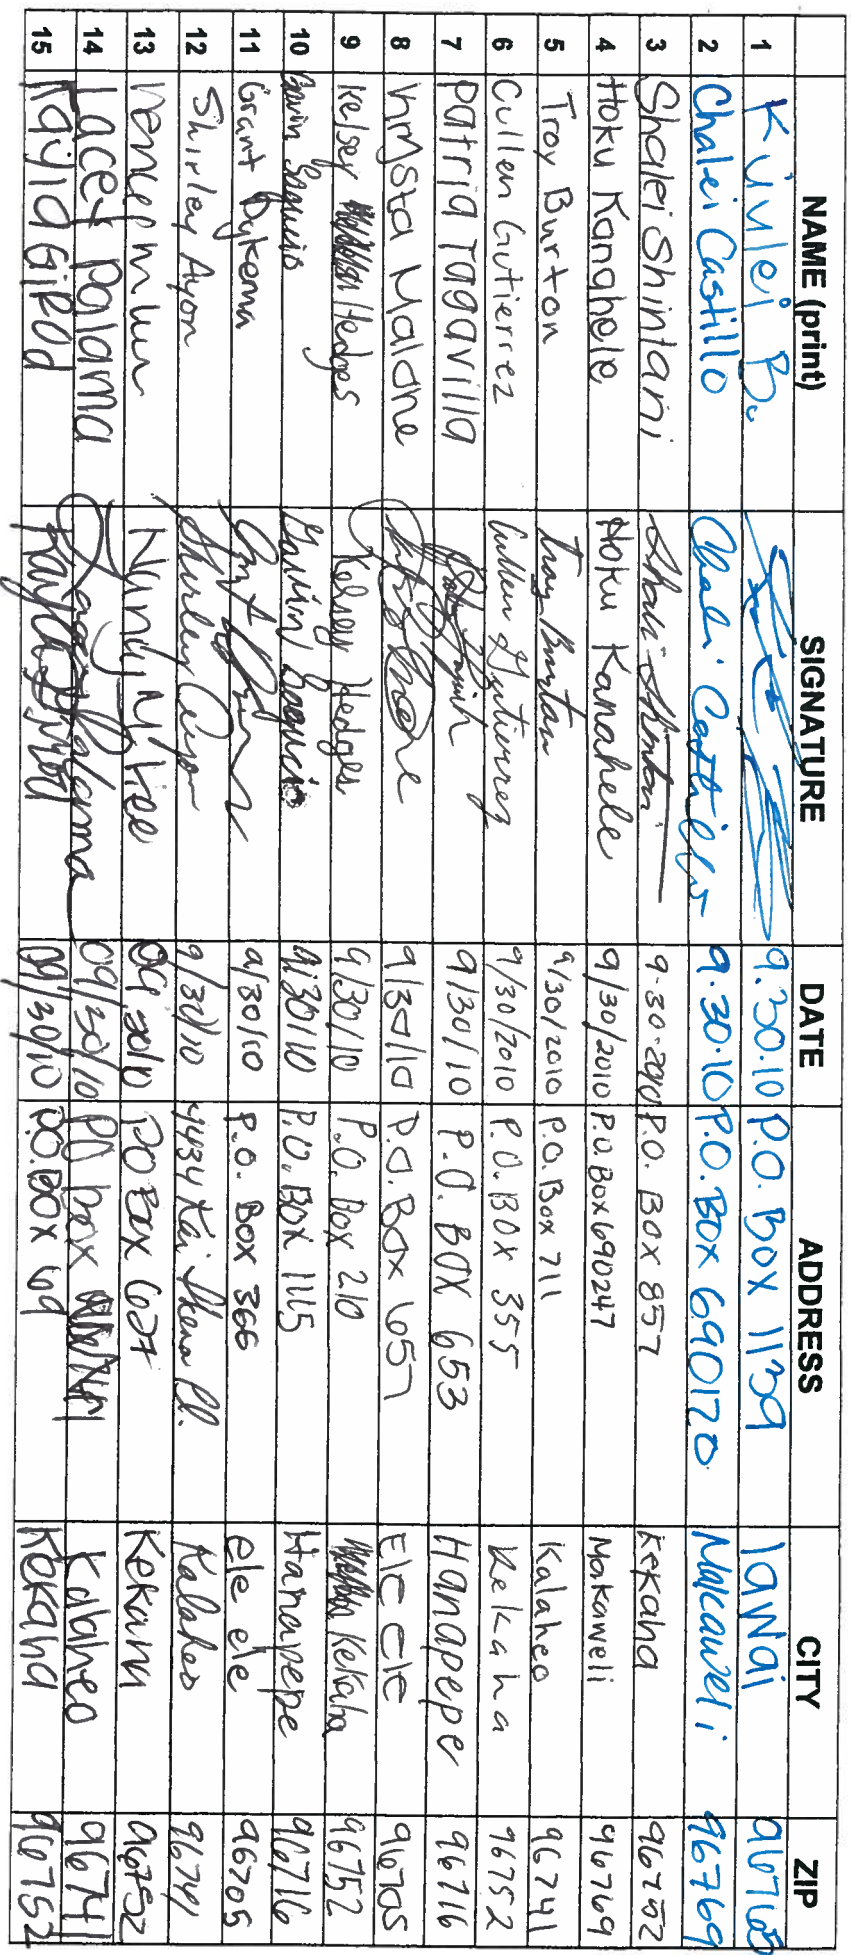 NAME (print) SIGNATURE DATE ADDRESS CITY ZIP
1 Kuulei B. 9.30.10 P.O. Box 1139 lawai 96765
2 Chalei Castillo Chalei Castillo 9.30.10 P.O. Box 690170 Makaweli 96769
3 Shalei Shintani Shalei Shintani 9-30-2010 P.O. Box 857 Kekaha 96752
4 Hoku Kanahele Hoku Kanahele 9/30/2010 P.O. Box 690247 Makaweli 96769
5 Troy Burton Troy Burton 9/30/2010 P.O. Box 711 Kalaheo 96741
6 Cullen Gutierrez Cullen Gutierrez 9/30/2010 P.O. BOX 355 Kekaha 96752
7 Patria Tagavilla 9/30/10 P.O. BOX 653 Hanapepe 96716
8 Krysta Malone 9/30/10 P.O. Box 657 Ele ele 96705
9 Kelsey Hedges Kelsey Hedges 9/30/10 P.O. Box 210 Kekaha 96752
10 Gavin 9/30/10 P.O. Box 1115 Hanapepe 96716
11 Grant Dykema 9/30/10 P.O. Box 366 ele ele 96705
12 Shirley Ayon Shirley Ayon 9/30/10 4434 Kai Pl. Kalaheo 96741
13 09/30/10 PO Box 627 Kekaha 96752
14 Lacey Palama Lacey Palama 09/30/10 PO box Kalaheo 96741
15 Kayla Girod Kayla 09/30/10 P.O. Box 69 Kekaha 96752